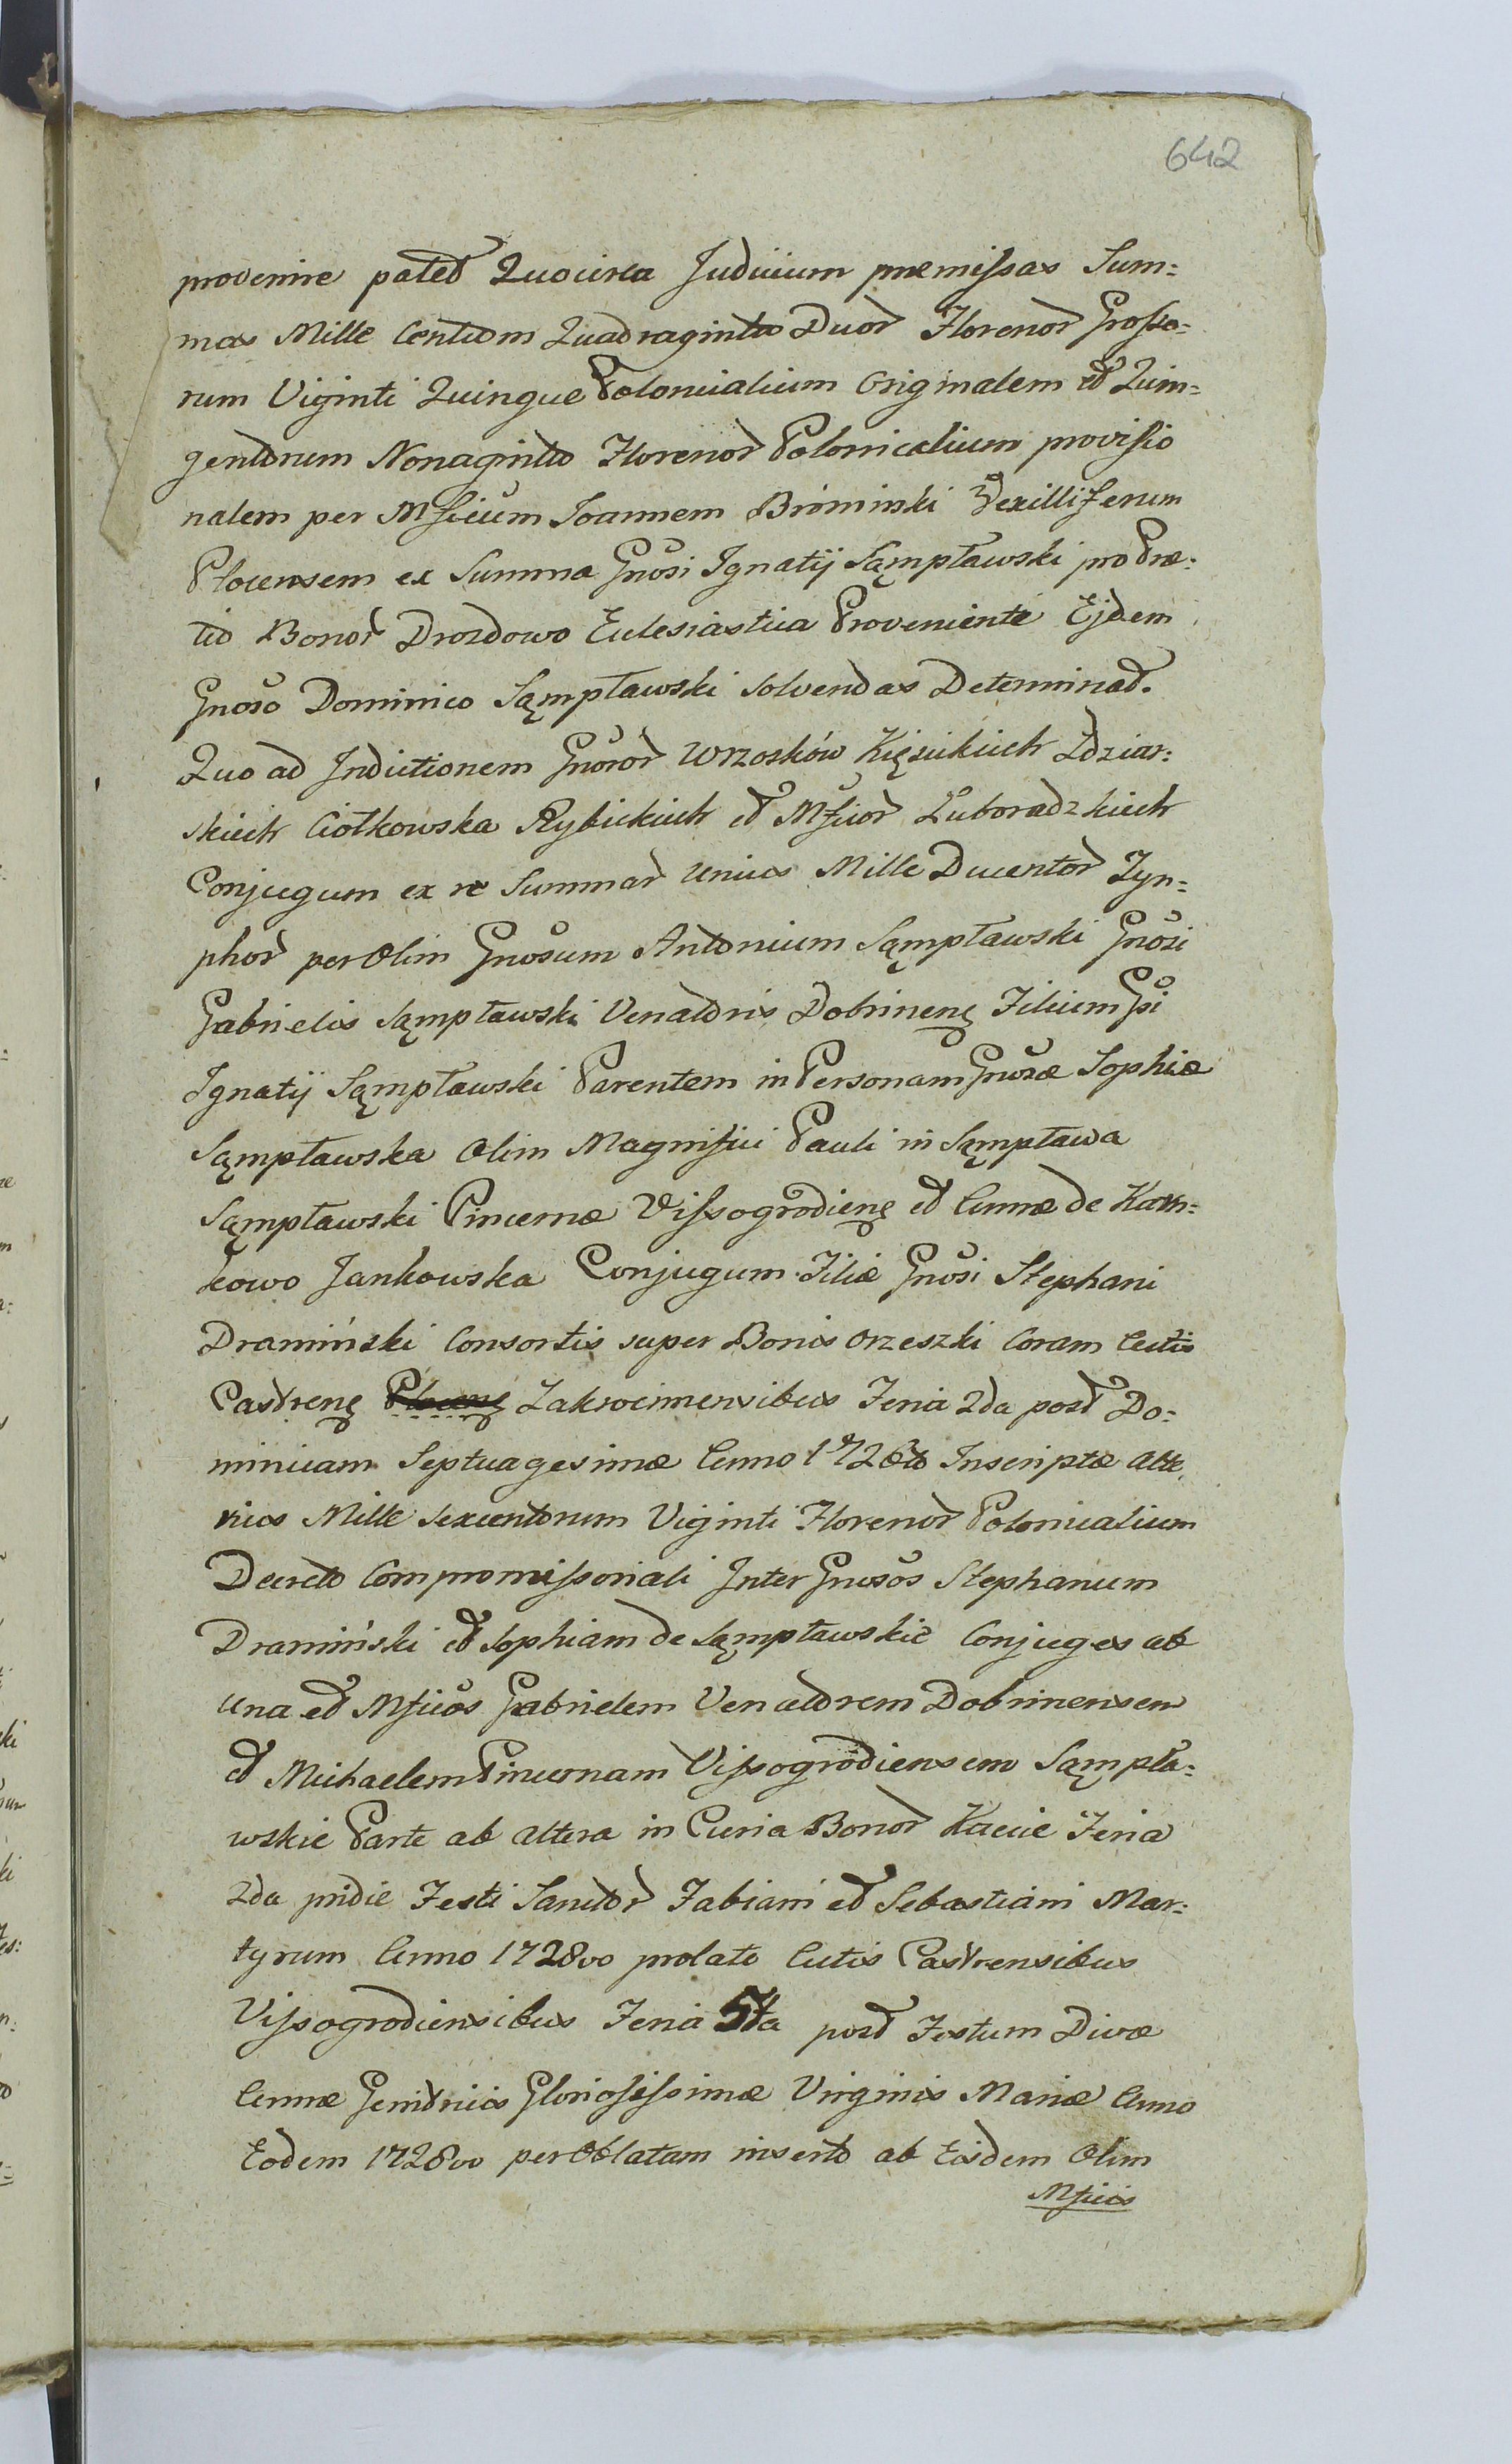 642
provenire patet Quocirca Judicium præmissas Sum:
mas Mille Centum Quadraginta Duor Florenor Grosso:
rum Viginti Quinque Polonicalium Originalem et Quin:
gentorum Nonaginta Florenor Polonicalium provisio
nalem per Mficum Joannem Bromirski Vexilliferum
Plocensem ex Summa Gnosi Ignatij Sąmpławski pro Præ:
tio Bonor Drozdowo Eclesiastica Proveniente Ejdem
Gnoso Dominico Sąmpławski solvendas Determinat.
Quo ad Indictionem Gnosor Wrzosków Kięsickich Zdziar:
skich Ciołkowska Rybickich et Mficor Luboradzkich
Conjugum ex re Summar Unius Mille Ducentor Tyn:
phor per Olim Gnosum Antonium Sąmpławski Gnosi
Gabrielis Sąmpławski Venatoris Dobrinenę Filium Gsi
Ignatij Sąmpławski Parentem in Personam Gnosæ Sophiæ
Sąmpławska Olim Magnifici Pauli in Sąmpława
Sąmpławski Pincernæ Vissogrodienę et Annæ de
kowo Jankowska Conjugum Filiæ Gnosi Stephani
Dramiński Consortis super Bonis Orzeszki Coram Actis
Castrenę Plocenę Zakrocimensibus Feria 2da post Do:
minicam Septuagesimæ Anno 1726to Inscriptæ Alte
rius Mille Sexcentorum Viginti Florenor Polonicalium
Decreto Compromissoriali Inter Gnosos Stephanum
Dramiński et Sophiam de Sąmpławskie Conjuges ab
una et Mficos Gabrielem Venatorem Dobrinensem
et Michaelem Pincernam Vissogrodiensem Sąmpła:
wskie Parte ab altera in Curia Bonor Feria
2da pridie Festi Sanctor Fabiani et Sebastiani Mar:
tyrum Anno 1728vo prolato Actis Castrensibus
Vissogrodiensibus Feria 5ta post Festum Divæ
Annæ Genitricis Gloriosissimæ Virginis Mariæ Anno
Eodem 1728vo per Oblatam inserto ab Eisdem Olim
Mficis